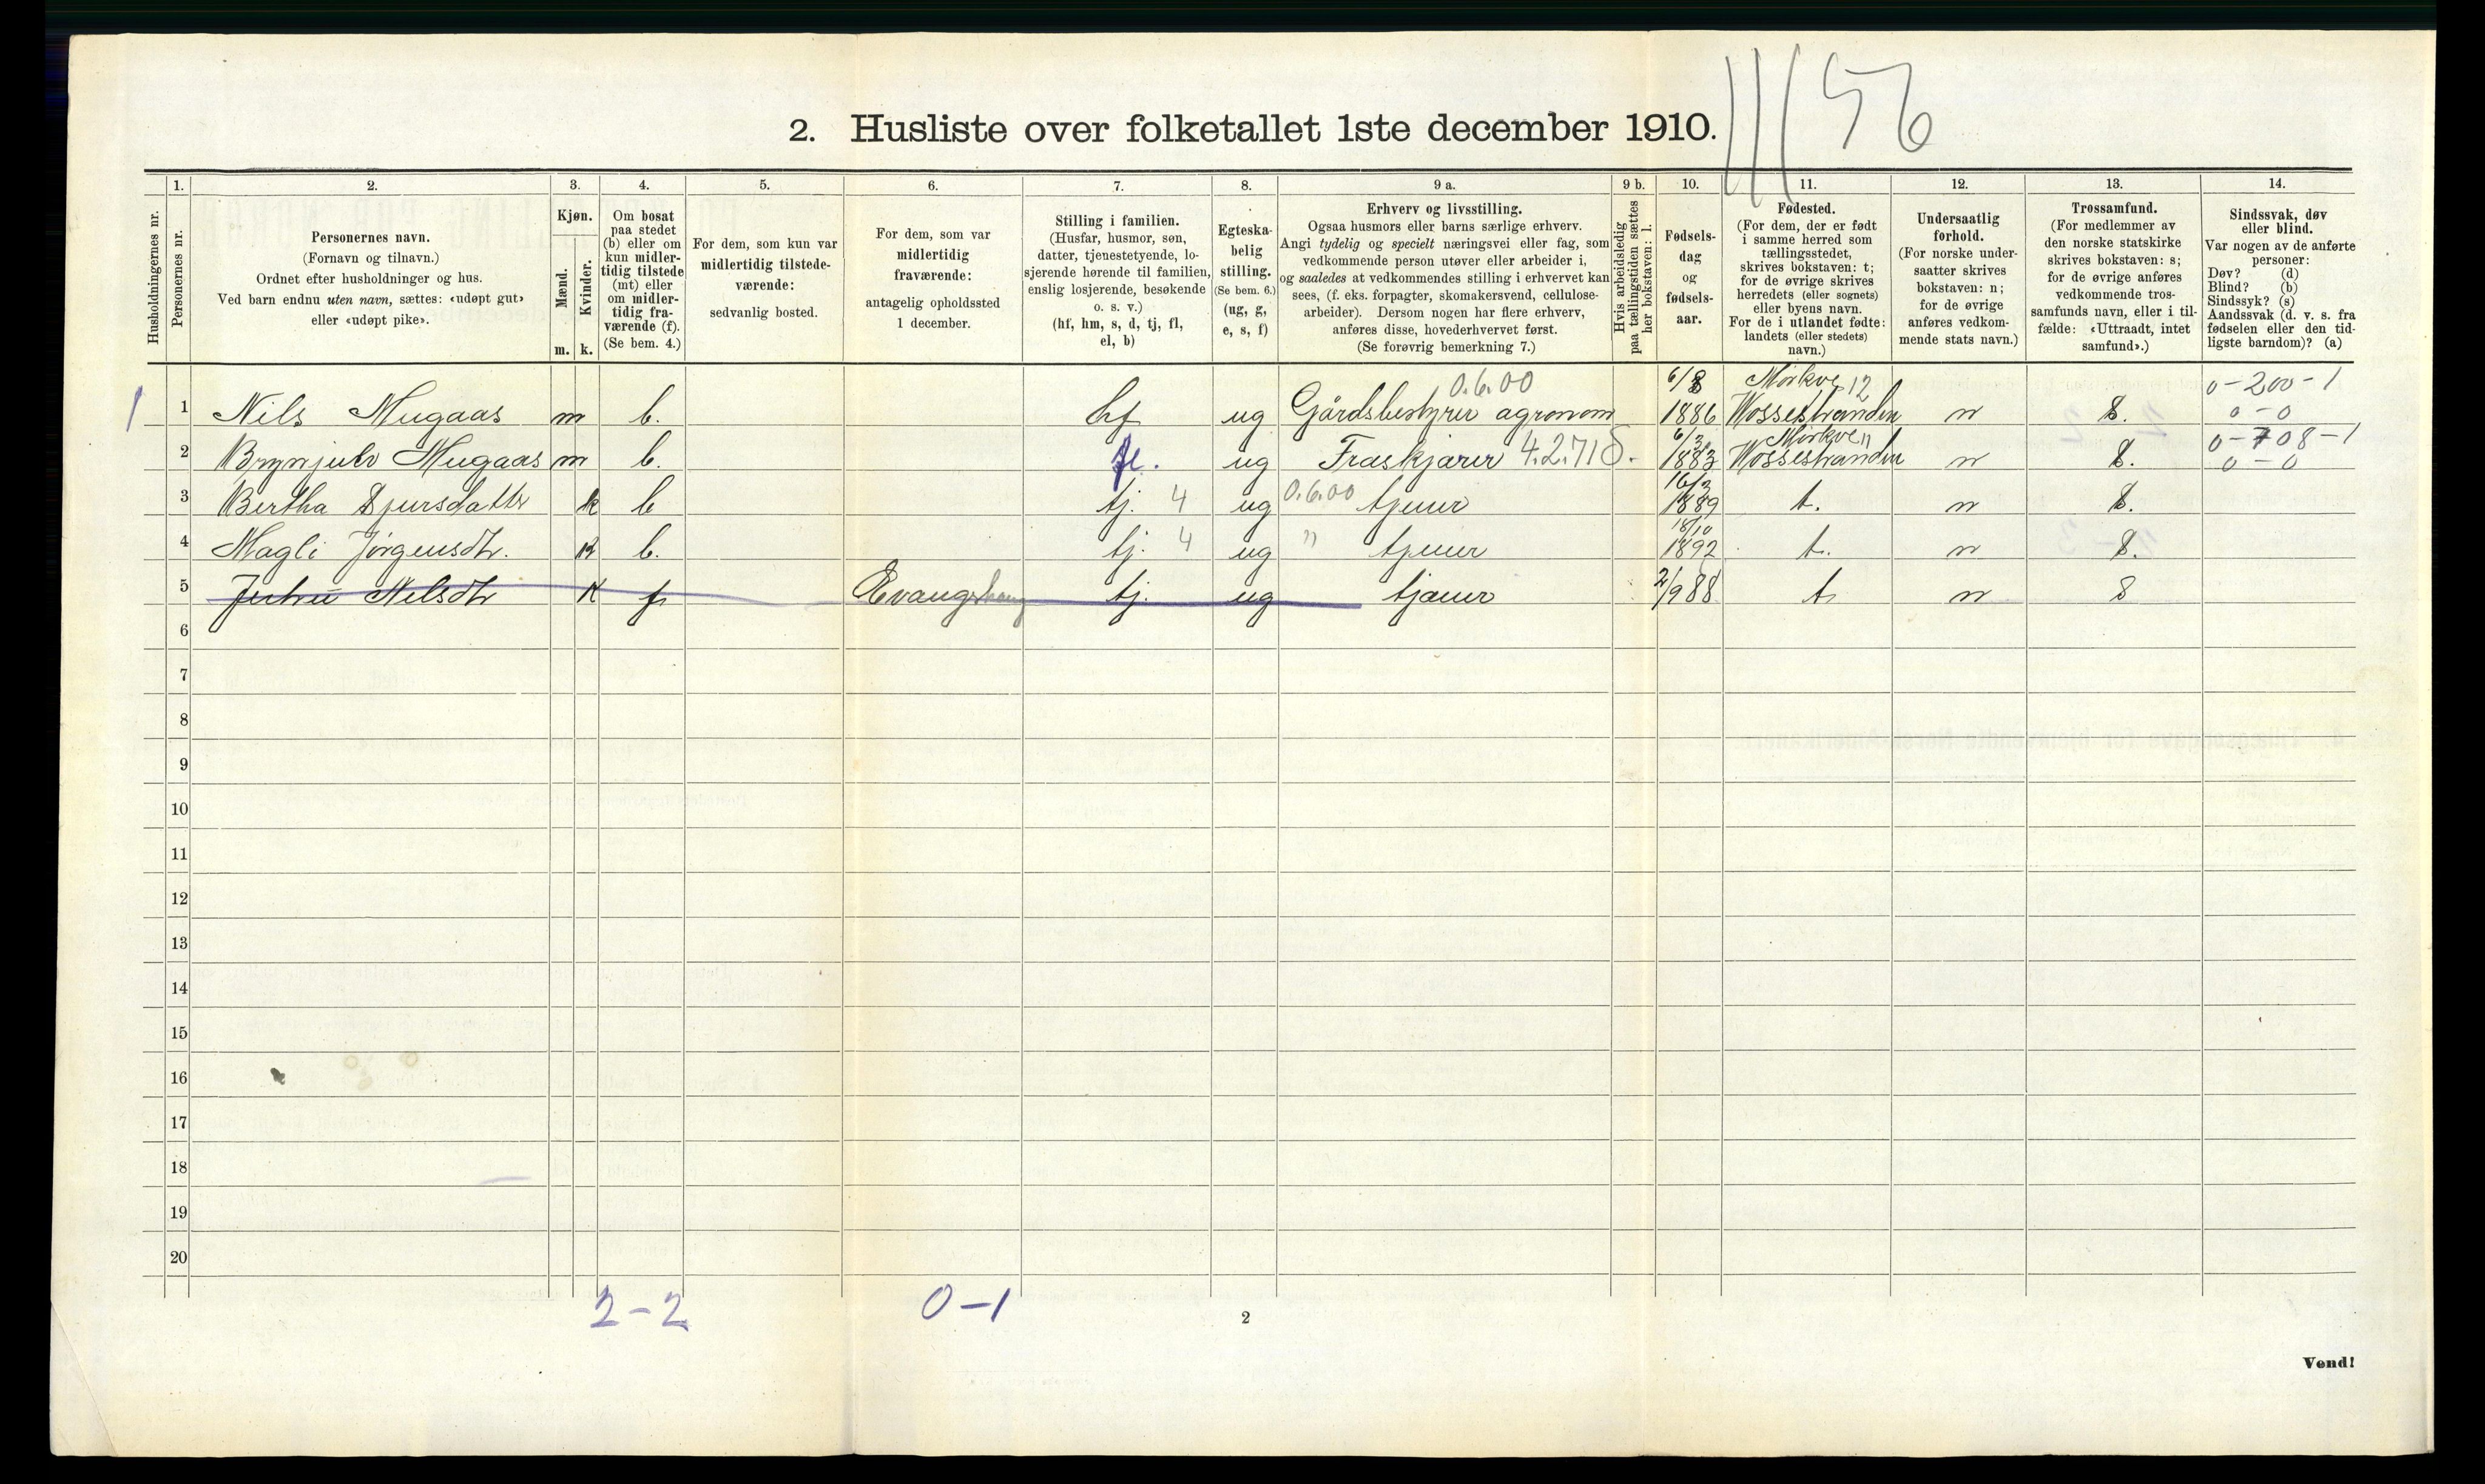 11/56
2. Husliste over folketallet 1ste december 1910.
1. 2. 3. 4. 5. 6. 7. 8. 9 a. 9 b. 10. 11. 12. 13. 14.
Husholdningernes nr.
Personernes nr.
Personernes navn.
(Fornavn og tilnavn.)
Ordnet efter husholdninger og hus.
Ved barn endnu uten navn, sættes: «udøpt gut»
eller «udøpt pike».
Kjøn.
Mænd.
Kvinder.
m. k.
Om bosat
paa stedet
(b) eller om
kun midler-
tidig tilstede
(mt) eller
om midler-
tidig fra-
værende (f).
(Se bem. 4.)
For dem, som kun var
midlertidig tilstede-
værende:
sedvanlig bosted.
For dem, som var
midlertidig
fraværende:
antagelig opholdssted
1 december.
Stilling i familien.
(Husfar, husmor, søn,
datter, tjenestetyende, lo-
sjerende hørende til familien,
enslig losjerende, besøkende
o. s. v.)
(hf, hm, s, d, tj, fl,
el, b)
Egteska-
belig
stilling.
(Se bem. 6.)
(ug, g,
e, s, f)
Erhverv og livsstilling.
Ogsaa husmors eller barns særlige erhverv.
Angi tydelig og specielt næringsvei eller fag, som
vedkommende person utøver eller arbeider i,
og saaledes at vedkommendes stilling i erhvervet kan
sees, (f. eks. forpagter, skomakersvend, cellulose-
arbeider). Dersom nogen har flere erhverv,
anføres disse, hovederhvervet først.
(Se forøvrig bemerkning 7.)
Hvis arbeidsledig
paa tællingstiden sættes
her bokstaven: l.
Fødsels-
dag
og
fødsels-
aar.
Fødested.
(For dem, der er født
i samme herred som
tællingsstedet,
skrives bokstaven: t;
for de øvrige skrives
herredets (eller sognets)
eller byens navn.
For de i utlandet fødte:
landets (eller stedets)
navn.)
Undersaatlig
forhold.
(For norske under-
saatter skrives
bokstaven: n;
for de øvrige
anføres vedkom-
mende stats navn.)
Trossamfund.
(For medlemmer av
den norske statskirke
skrives bokstaven: s;
for de øvrige anføres
vedkommende tros-
samfunds navn, eller i til-
fælde: «Uttraadt, intet
samfund».)
Sindssvak, døv
eller blind.
Var nogen av de anførte
personer:
Døv? (d)
Blind? (b)
Sindssyk? (s)
Aandssvak (d. v. s. fra
fødselen eller den tid-
ligste barndom)? (a)
0.6.00 6/8 Mørkve 12 0-200-1
1 1 Nils Mugaas m b. hf ug Gårdsbestyrer agronom 1886 Wossestranden n S. 0-0
6/3 Mørkve 11 0-708-1
2 Brynjulv Mugaas m b. fl. ug Fraskjærer 4.2.718. 1883 Wossestranden n S. 0-0
16/3
3 Bertha Sjursdatter k b tj. 4 ug 0.6.00 tjener 1889 t. n S.
18/10
4 Magli Jørgensdtr. k b. tj. 4 ug " tjener 1892 t. n S.
5 Nilsdtr k f tj. ug tjener 2/9 88 t. n S
6
7
8
9
10
11
12
13
14
15
16
17
18
19
20
2-2 0-1
2
Vend!